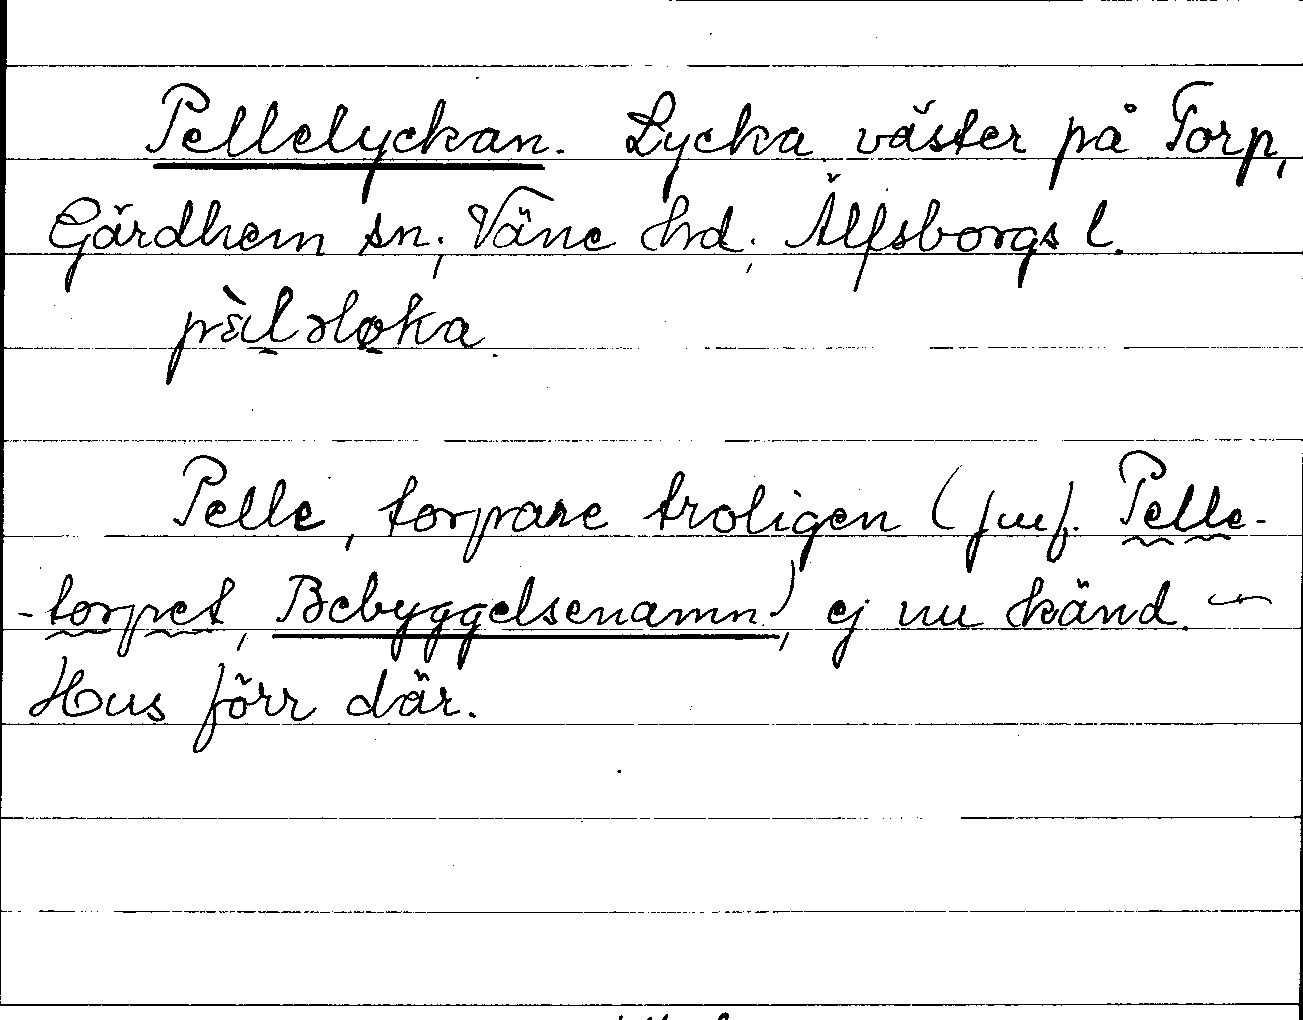 Pellelyckan. Lycka väster på Torp,
Gärdhem sn, Väne hd, Älfsborgs l.
pæ̀lələka
Pelle, torpare troligen (jmf. Pelle-
-torpet, Bebyggelsenamn), ej nu känd. –
Hus förr där.